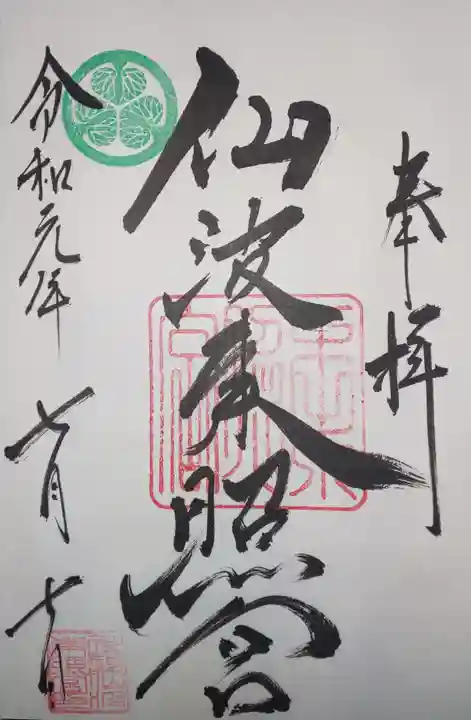 奉拝
仙波東照宮
令和元年
七月七日